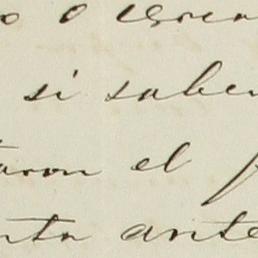 o o
si saber
taron el
nta ante